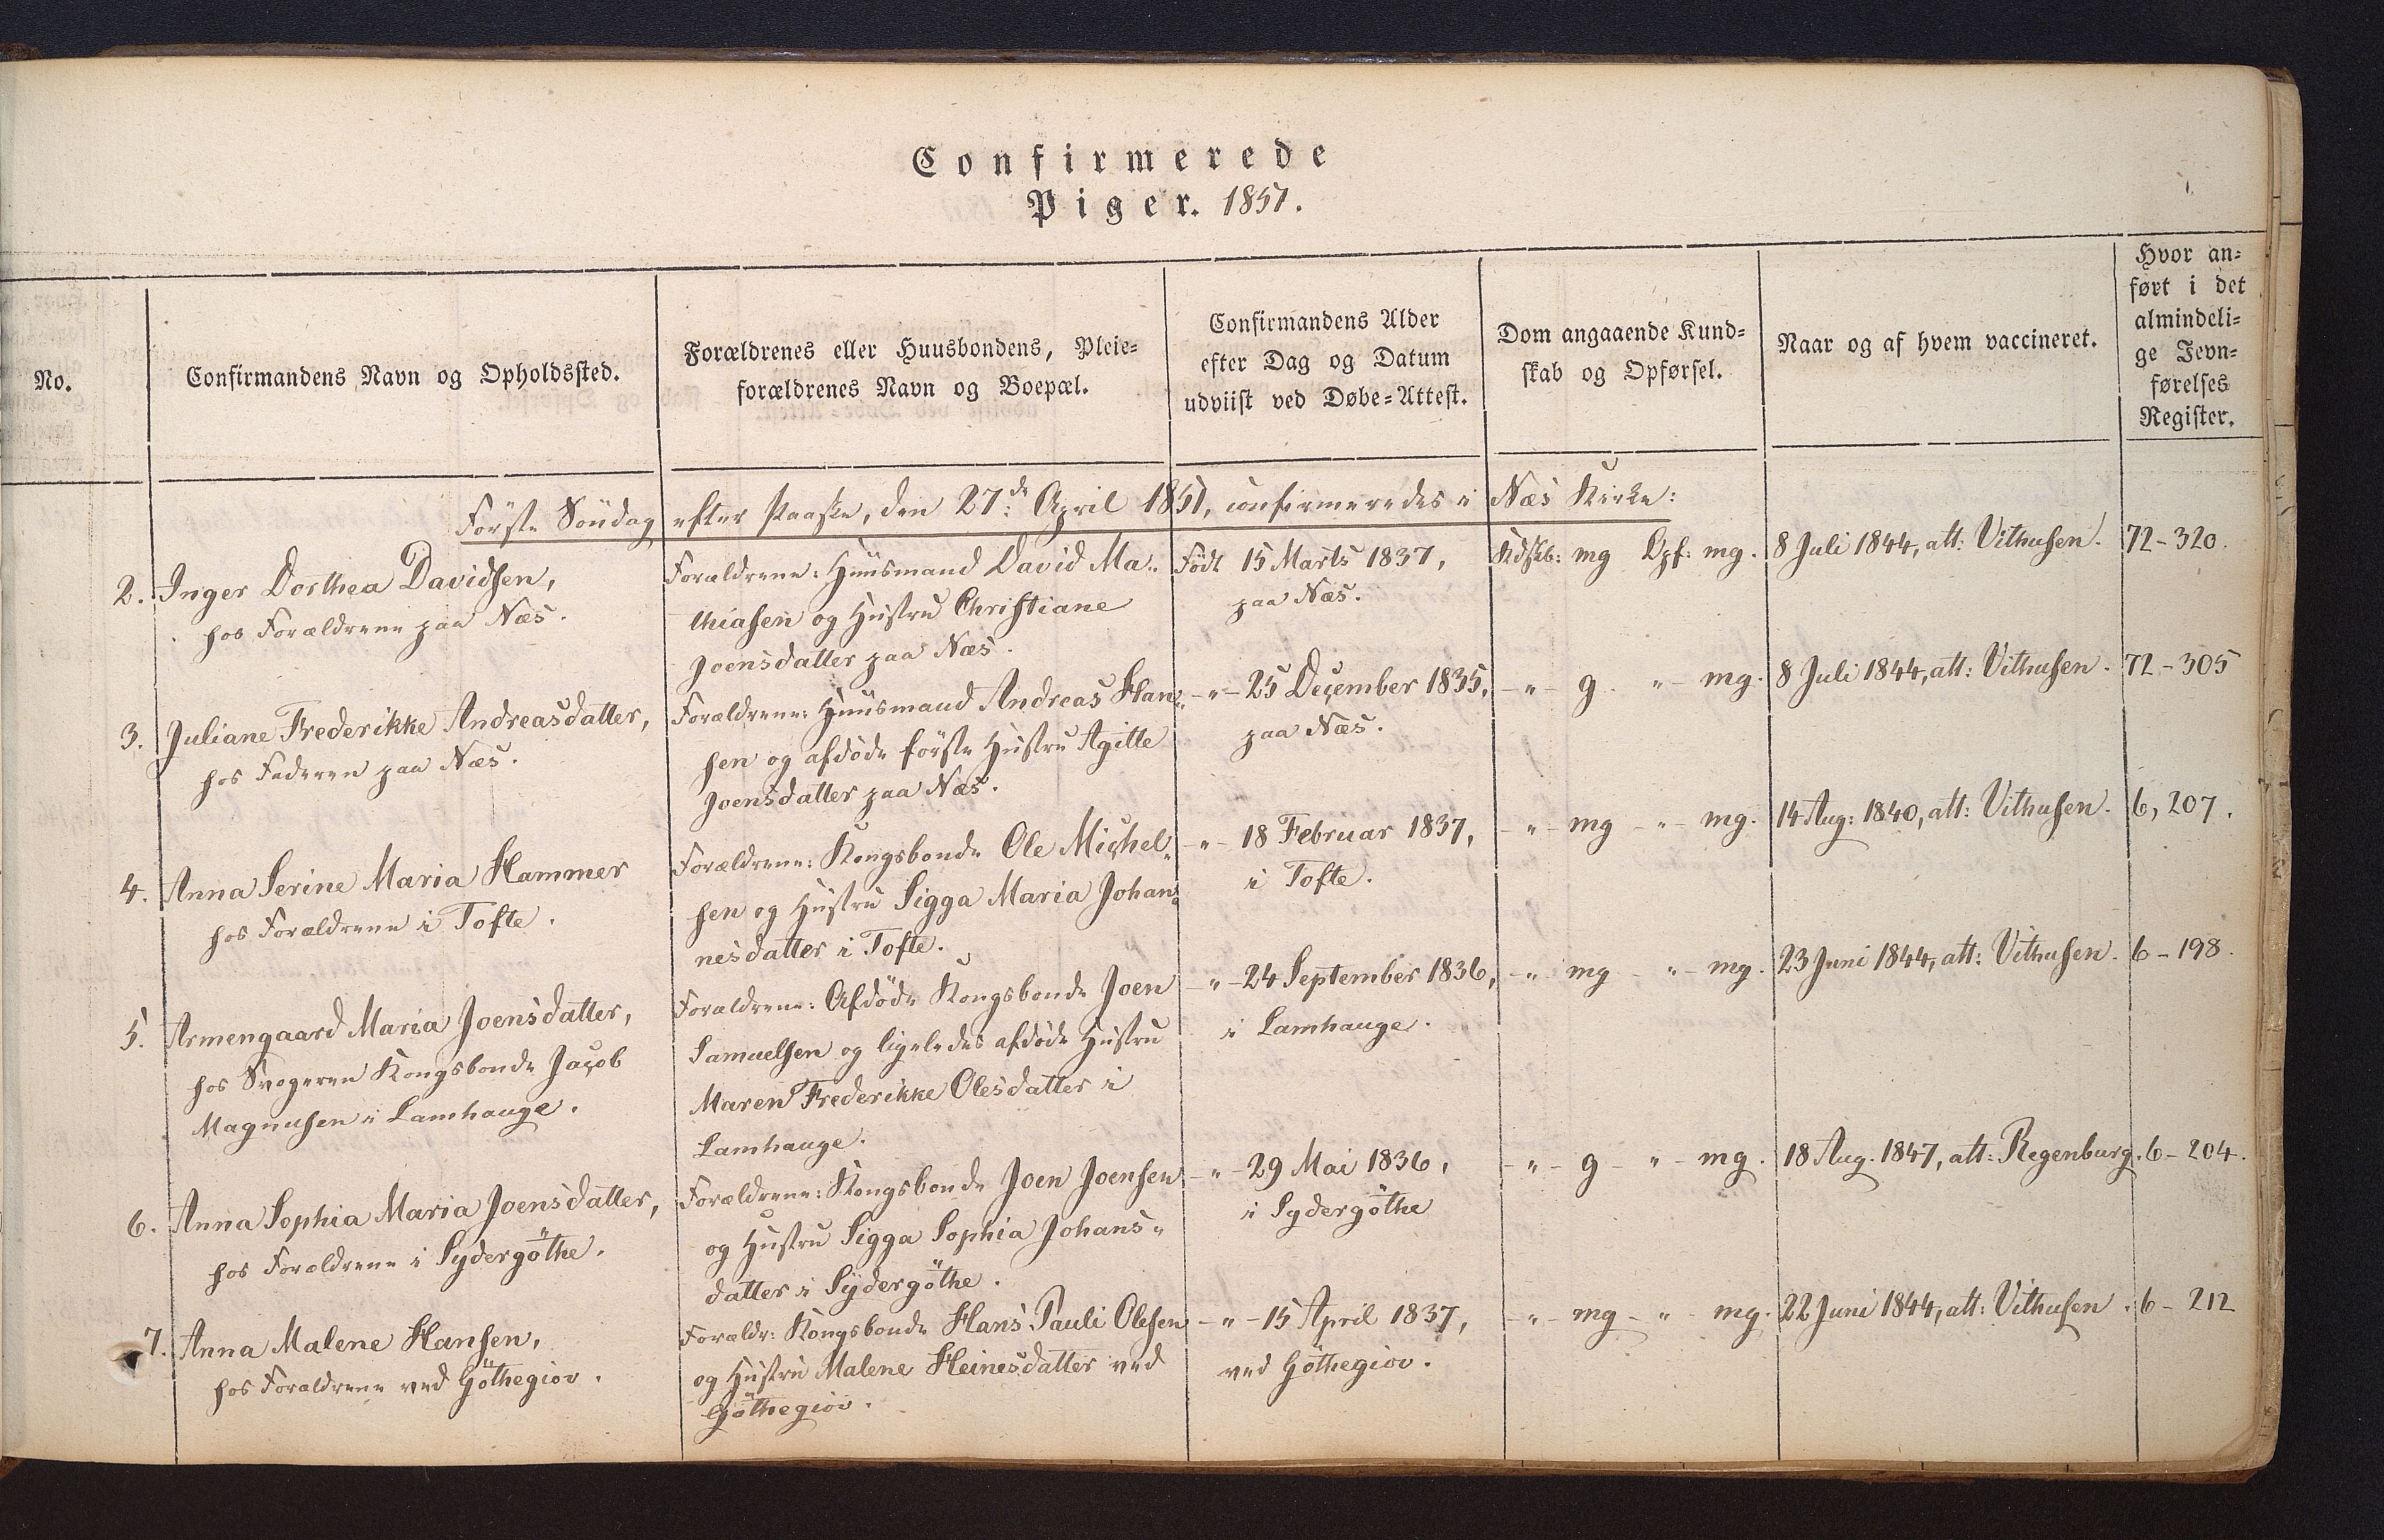 Confirmerede
Piger. 1851.
No.
Confirmandens Navn og Opholdssted.
Forældrenes eller Huusbondens, Pleie-
forældrenes Navn og Boepæl.
Confirmandens Alder
efter Dag og Datum
udviist ved Døbe-Attest.
Dom angaaende Kund-
skab og Opførsel.
Naar og af hvem vaccineret.
Hvor an-
ført i det
almindeli-
ge Jevn-
førelses
Register.
Förste Söndag efter Paaske, den 27de April 1851, confirmeredes i Næs Kirke:
2. Inger Dorthea Davidsen,
hos Forældrene paa Næs.
Forældrene: Huusmand David Ma-
thiasen og Hustru Christiane
Joensdatter paa Næs.
Födt 15 Marts 1837,
paa Næs.
Kdskb: mg Opf: mg.
8 Juli 1844, att: Vithusen.
72-320.
3. Juliane Frederikke Andreasdatter,
hos Faderen paa Næs.
Forældrene: Huusmand Andreas Han-
sen og afdöde förste Hustru Agitte
Joensdatter paa Næs.
-"- 25 December 1835,
paa Næs.
-"- g. "- mg.
8 Juli 1844, att: Vithusen.
72-305
4. Anna Serine Maria Hammer
hos Forældrene i Tofte.
Forældrene: Kongsbonde Ole Michel-
sen og Hustru Sigga Maria Johan-
nesdatter i Tofte.
-"- 18 Februar 1837,
i Tofte.
-"- mg -"- mg.
14 Aug: 1840, att: Vithusen.
6, 207.
5. Armengaard Maria Joensdatter,
hos Svogeren Kongsbonde Jacob
Magnusen i Lamhauge.
Forældrene: Afdöde Kongsbonde Joen
Samuelsen og ligeledes afdöde Hustru
Maren Frederikke Olesdatter i
Lamhauge.
-"- 24 September 1836,
i Lamhauge.
-"- mg -"- mg.
23 Juni 1844, att: Vithusen.
6-198.
6. Anna Sophia Maria Joensdatter,
hos Forældrene i Sydergöthe.
Forældrene: Kongsbonde Joen Joensen
og Hustru Sigga Sophia Johans-
datter i Sydergöthe.
-"- 29 Mai 1836,
i Sydergöthe
-"- g -"- mg.
18 Aug. 1847, att: Regenburg.
6-204.
7. Anna Malene Hansen,
hos Forældrene ved Göthegiov.
Forældr: Kongsbonde Hans Pauli Olesen
og Hustru Malene Heinesdatter ved
Göthegiov.
-"- 15 April 1837,
ved Göthegiov.
-"- mg -"- mg.
22 Juni 1844, att: Vithusen.
6-212